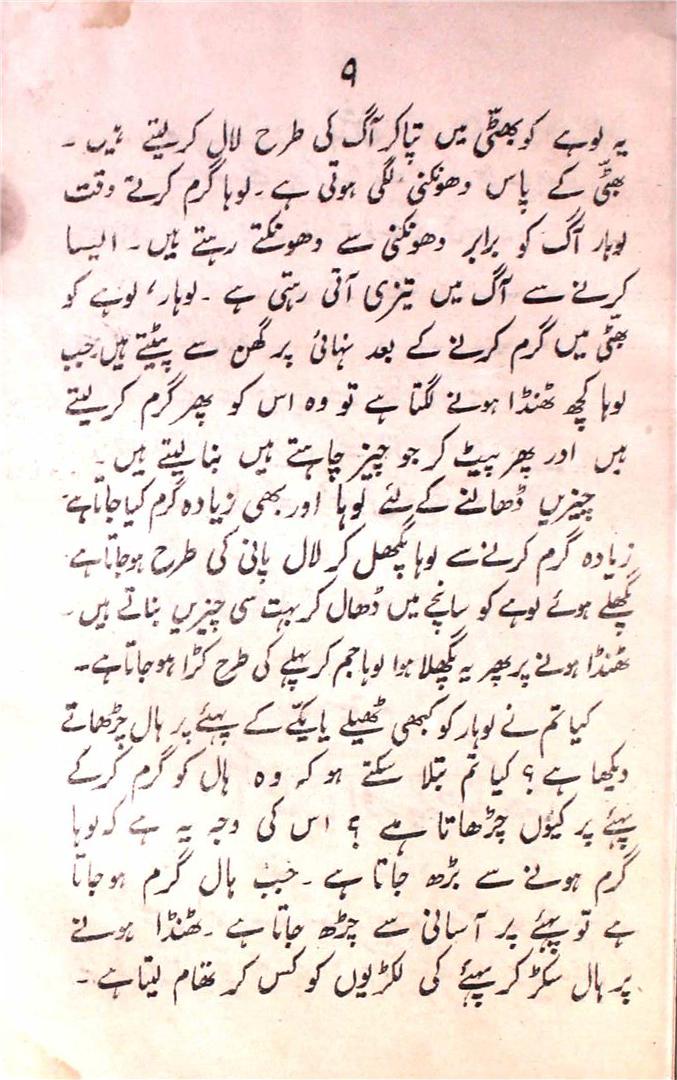 ۹
یہ لوہے کو بھٹّی میں تپا کر آگ کی طرح لال کر لیتے ہیں ۔
بھٹّی کے پاس دھونکنی لگی ہوتی ہے ۔ لوہا گرم کرتے وقت
لوہار آگ کو برابر دھونکنی سے دھونکتے رہتے ہیں ۔ ایسا
کرنے سے آگ میں تیزی آتی رہتی ہے ۔ لوہار، لوہے کو
بھٹّی میں گرم کرنے کے بعد نہائی پر گھن سے پیٹتے ہیں جب
لوہا کچھ ٹھنڈا ہونے لگتا ہے تو وہ اس کو پھر گرم کر لیتے
ہیں اور پھر پیٹ کر جو چیز چاہتے ہیں بنا لیتے ہیں ۔
چیزیں ڈھالنے کے لئے لوہا اور بھی زیادہ گرم کیا جاتا ہے ۔
زیادہ گرم کرنے سے لوہا پگھل کر لال پانی کی طرح ہو جاتا ہے ۔
پگھلے ہوئے لوہے کو سانچے میں ڈھال کر بہت سی چیزیں بناتے ہیں ۔
ٹھنڈا ہونے پر پھر یہ پگھلا ہوا لوہا جم کر پہلے کی طرح کڑا ہو جاتا ہے ۔
کیا تم نے لوہار کو کبھی ٹھیلے یا یکّے کے پہئے پر ہال چڑھاتے
دیکھا ہے ؟ کیا تم بتلا سکتے ہو کہ وہ ہال کو گرم کر کے
پہئے پر کیوں چڑھاتا ہے ؟ اس کی وجہ یہ ہے کہ لوہا
گرم ہونے سے بڑھ جاتا ہے ۔ جب ہال گرم ہو جاتا
ہے تو پہئے پر آسانی سے چڑھ جاتا ہے ۔ ٹھنڈا ہونے
پر ہال سکڑ کر پہئے کی لکڑیوں کو کس کر تھام لیتا ہے ۔